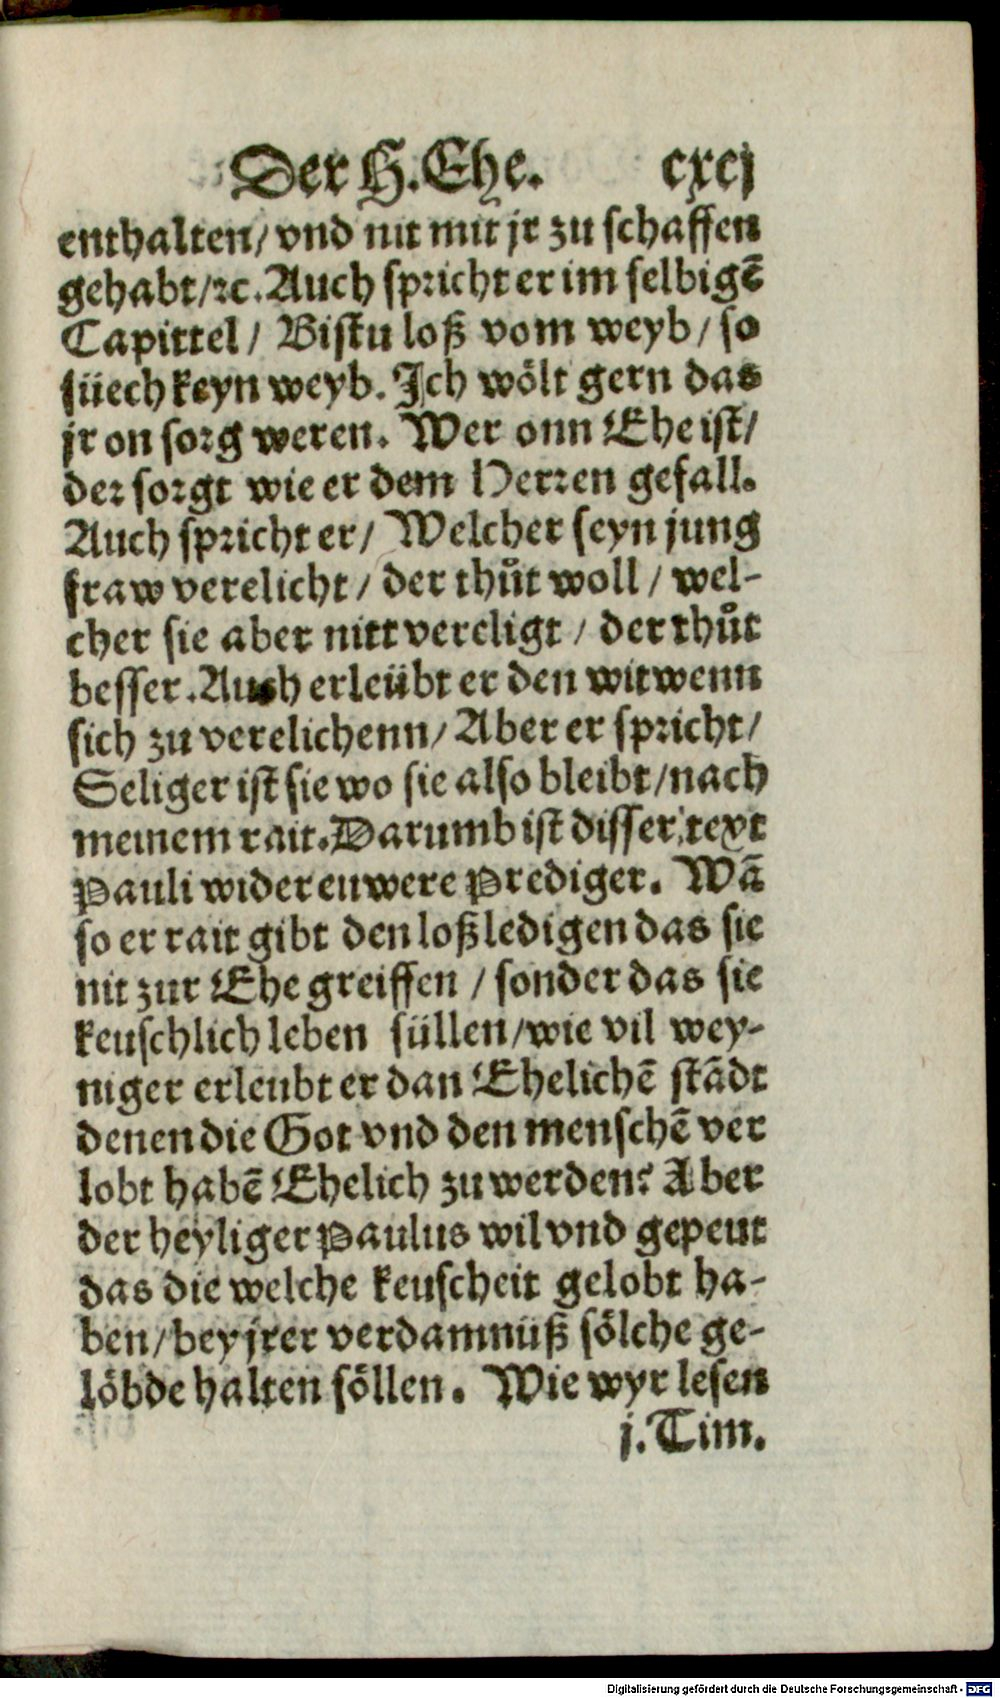 Der H. Ehe. cxcj
enthalten/ vnd nit mit jr zu schaffen
gehabt/ꝛc. Auch spricht er im selbigē
Capittel/ Bistu loß vom weyb/ so
süech keyn weyb. Ich wölt gern das
jr on sorg weren. Wer onn Ehe ist/
der sorgt wie er dem Herren gefall.
Auch spricht er/ Welcher seyn jung
fraw verelicht/ der thůt woll/ wel-
cher sie aber nitt vereligt/ der thůt
besser. Auch erleübt er den witwenn
sich zu verelichenn/ Aber er spricht/
Seliger ist sie wo sie also bleibt/nach
meinem rait. Darumb ist disser text
Pauli wider euwere Prediger. Wā
so er rait gibt den loßledigen das sie
nit zur Ehe greiffen/ sonder das sie
keuschlich leben süllen/wie vil wey-
niger erleubt er dan Ehelichē stādt
denen die Got vnd den menschē ver
lobt habē Ehelich zu werden? Aber
der heyliger Paulus wil vnd gepeut
das die welche keuscheit gelobt ha-
ben/bey jrer verdamnüß sölche ge-
löbde halten söllen. Wie wyr lesen
j. Tim.
Digitalisierung gefördert durch die Deutsche Forschungsgemeinschaft - DFG